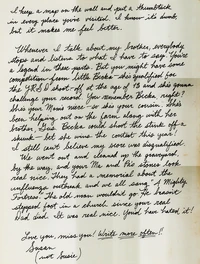 I keep a map on the wall and put a thumbtack
in every place you've visited. I know it's dumb
but it makes me feel better.
Whenever I talk about my brother, everybody
stops and listens to what I have to say. You're
a legend in these parts. But you might have some
competition from little Becka - she qualified for
the shoot-off at the age of 13 and she gonna
challenge your record. You remember Becka, right?
She's your niece - or she your cousin. She's
been helping out on the farm along with her
brother, Becka could shoot the stripe off a
skunk - but she won the contest this year? I
still can't believe my score was disqualified.
We went out and cleaned up the graveyard,
by the way, and you Ma and Pa's stones look
real nice. They had a memorial about the
influenza outbreak and we all sang "A Mighty
Fortress." The old man wouldn't go. He hasn't
stepped foot in a church since your real
Dad died. It was real nice. You'd have hated it!
Love you, miss you! Write more often!!
Susan
(not Susie)